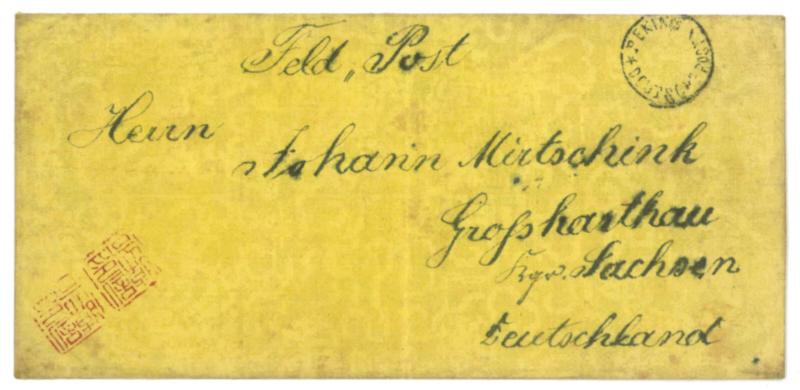 Feld„ Post
PEKING
DEUTSCHE POST
Herrn
Johann Mirtschink
Großharthau
Kgr. Sachsen
Deutschland